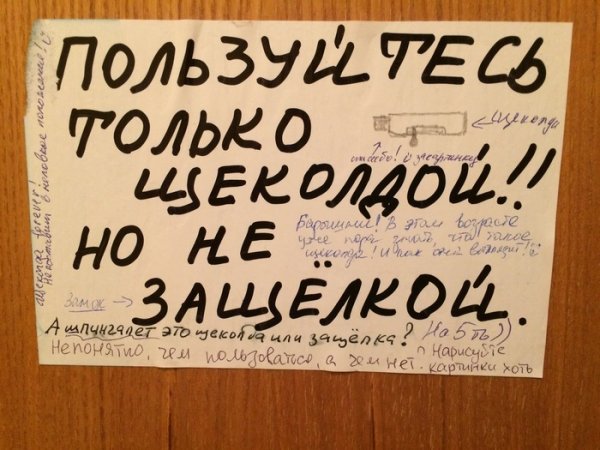 ПОЛЬЗУЙТЕСЬ
ТОЛЬКО
← Щеколда
↑ спасибо! за картинку
ЩЕКОЛДОЙ!!
Барышни! В этом возрасте
уже пора знать, что такое
щеколда! И как она выглядит!
НО НЕ
Замок →
ЗАЩЁЛКОЙ.
А шпингалет это щеколда или защёлка? На 5ть))
Непонятно, чем пользоваться, а чем нет.
^ Нарисуйте
картинки хоть
щеколда forever!
Не поставит в неловкое положение!